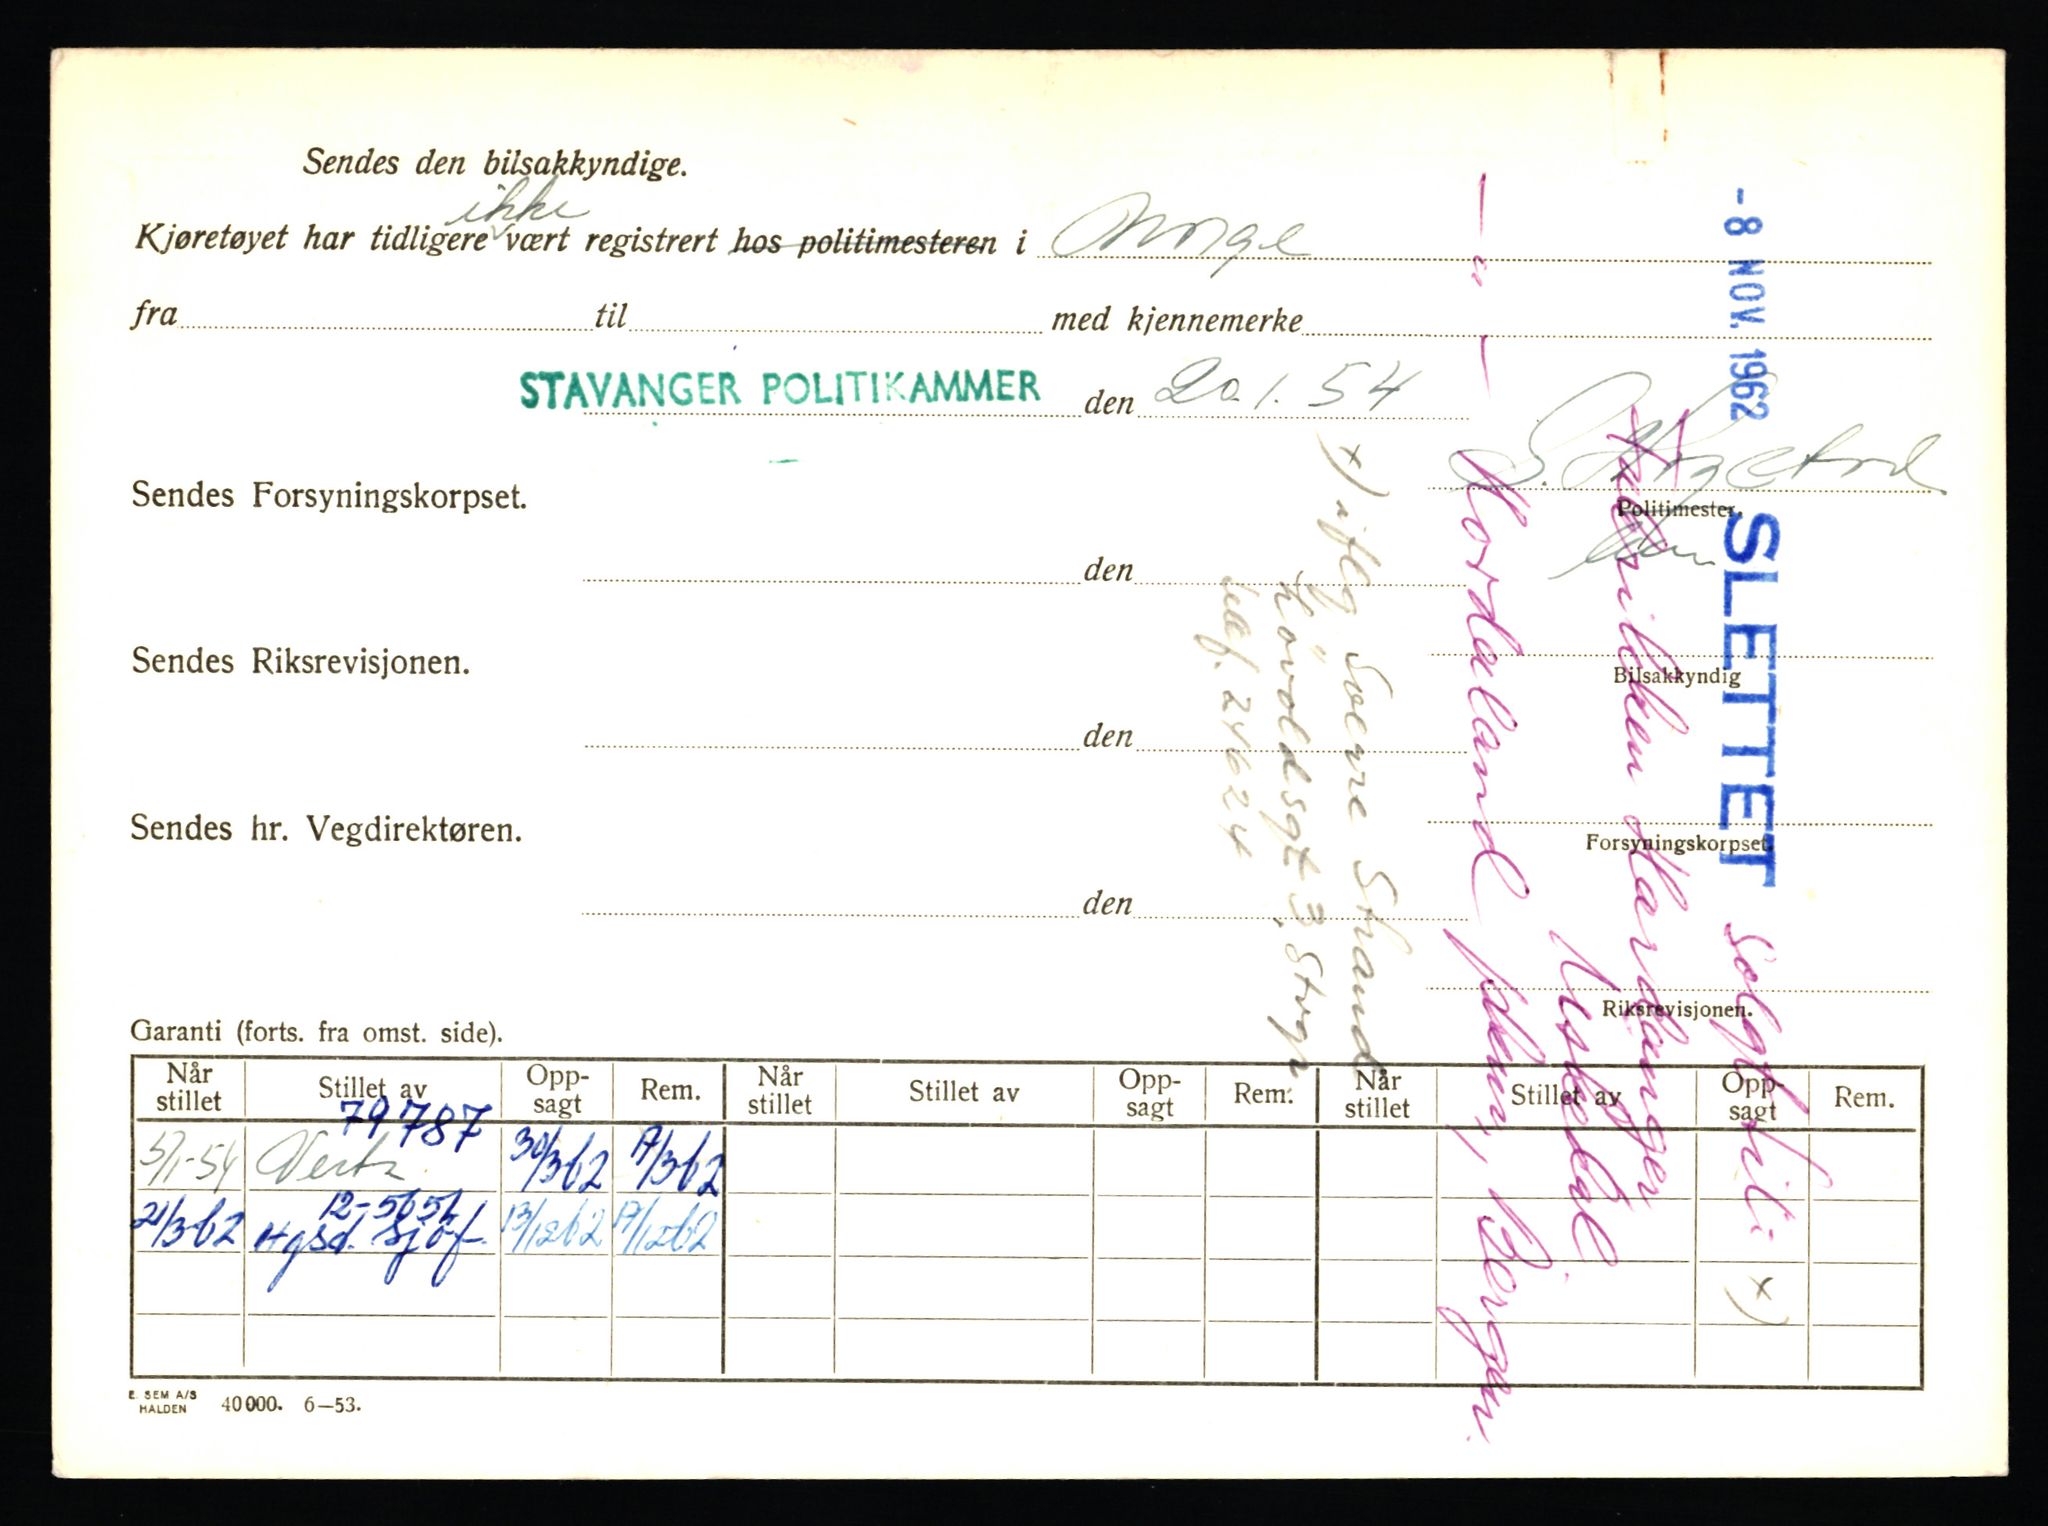 Sendes den bilsakkyndige.
ikke
Kjøretøyet har tidligere vært registrert hos politimesteren i Norge
fra til med kjennemerke
STAVANGER POLITIKAMMER den 20.1.54
Sendes Forsyningskorpset.
Politimester.
den
Sendes Riksrevisjonen.
Bilsakkyndig
den
Sendes hr. Vegdirektøren.
Forsyningskorpset.
den
Riksrevisjonen.
Garanti (forts. fra omst. side).
Når stillet Stillet av Opp-sagt Rem. Når stillet Stillet av Opp-sagt Rem. Når stillet Stillet av Opp-sagt Rem.
79787
5/1-54 Vesta 30/3-62 17/3-62
12-5654
21/3-62 Hgsd. Sjöf. 13/12-62 17/12-62
E. SEM A/S
HALDEN 40000. 6-53.
-8 NOV. 1962 SLETTET Solgt til: x)
Hardanger
Uskedal
- " - Hordaland pkm, Bergen.
x) iflg Sverre Strand
Hovoldsgt 3, Stvgr
telf. 24624